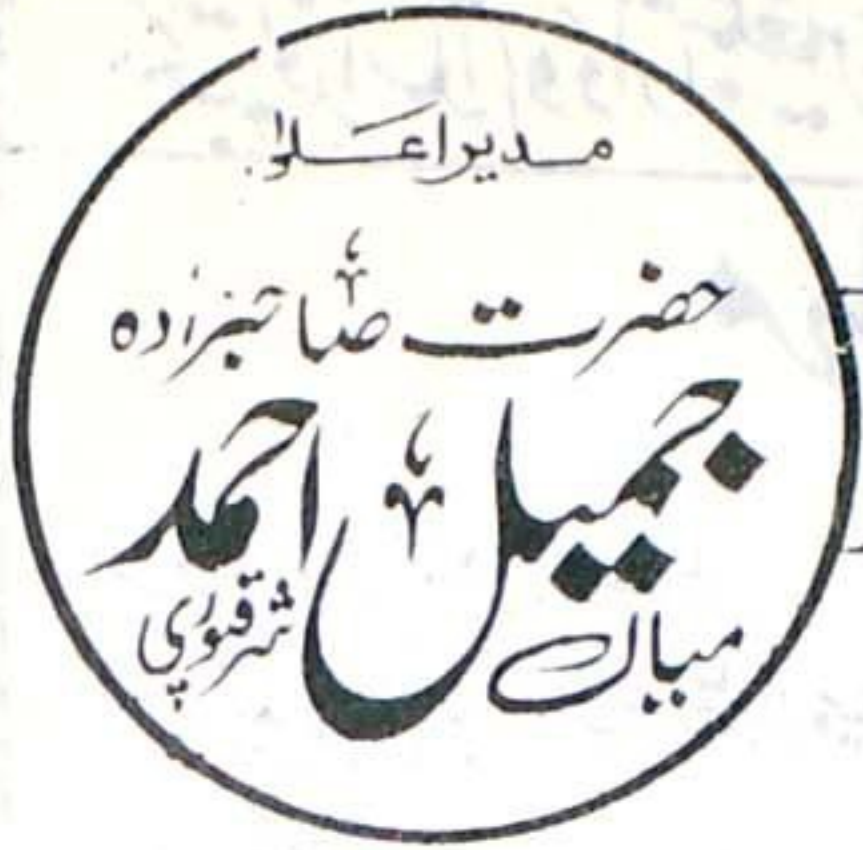 مدیر اعلیٰ
حضرت صاحبزادہ
جمیل احمد
میاں شرقپوری